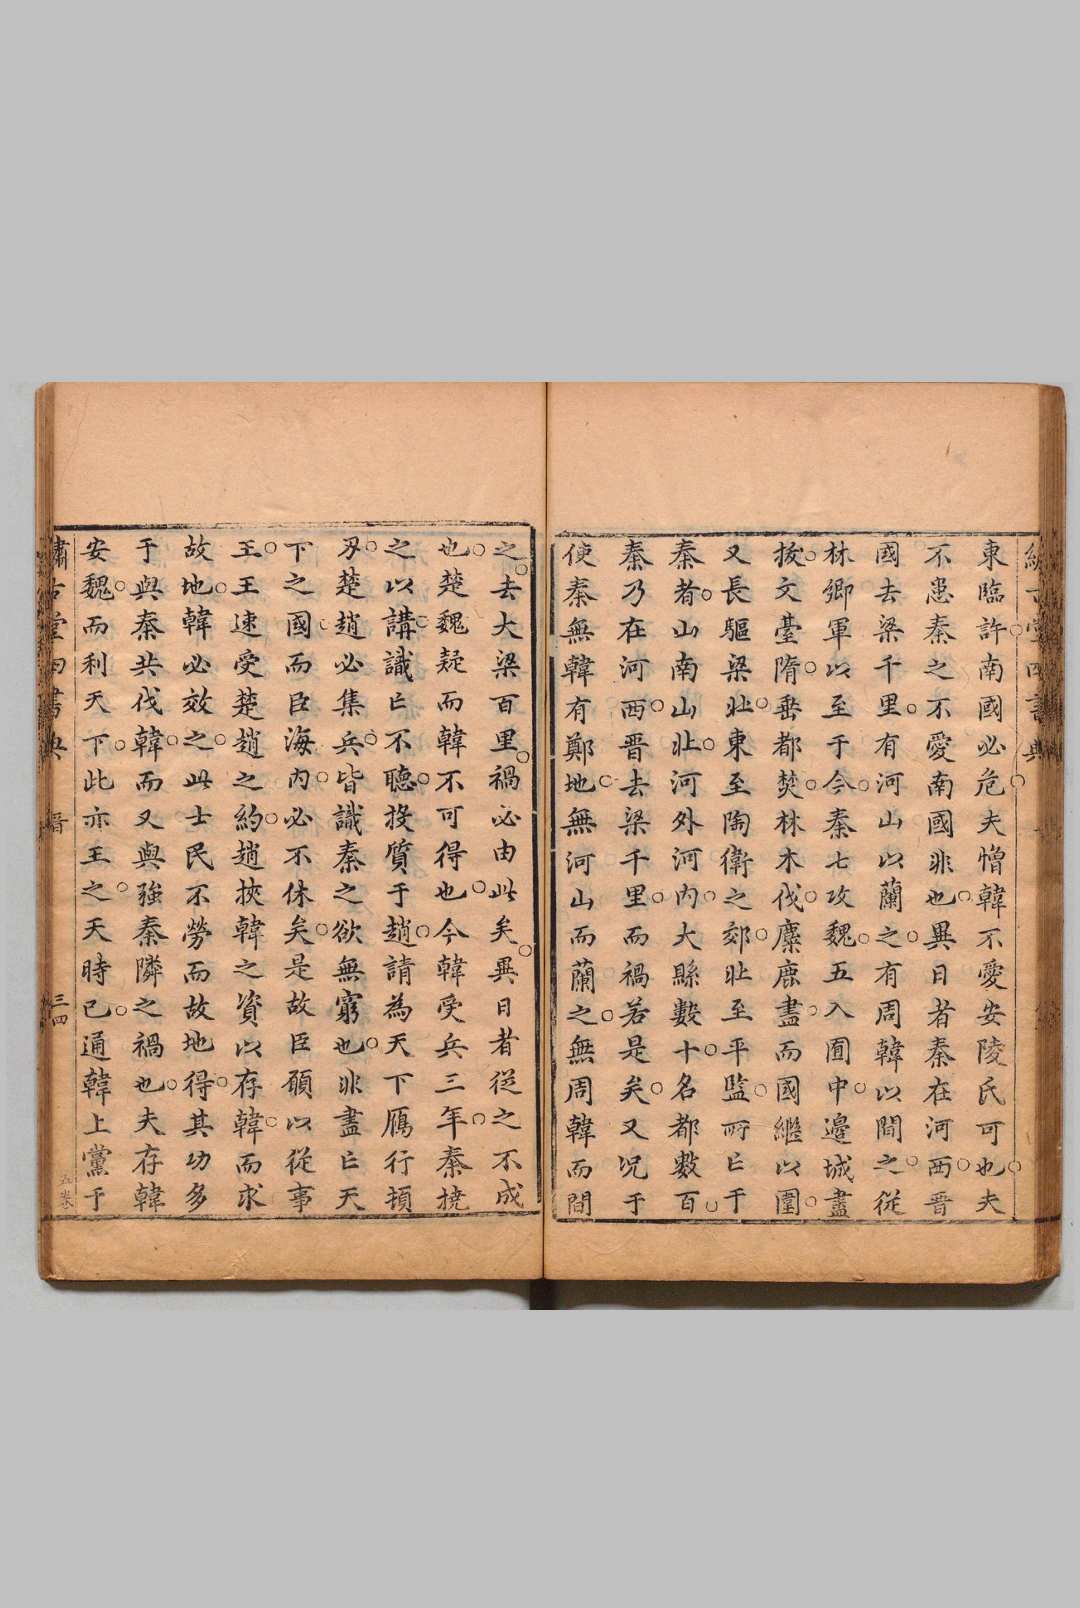 東臨許南國必危夫憎韓不愛安陵民可也夫
不患秦之不愛南國非也異日者秦在河西晉
國去梁千里有河山以蘭之有周韓以間之從
林鄉軍以至于今秦七攻魏五入囿中邊城盡
拔文臺隋垂都焚林木伐麋鹿盡而國繼以圍
又長驅梁北東至陶衛之郊北至平監所亡于
秦者山南山北河外河內大縣數十名都數百
秦乃在河西晉去梁千里而禍若是矣又况于
使秦無韓有鄭地無河山而蘭之無周韓而間
之去大梁百里禍必由此矣異日者從之不成
也楚魏疑而韓不可得也今韓受兵三年秦撓
之以講識亡不聽投質于趙請為天下鴈行頓
刃楚趙必集兵皆識秦之欲無窮也非盡亡天
下之國而臣海內必不休矣是故臣願以從事
王王速受楚趙之約趙挾韓之資以存韓而求
故地韓必效之此士民不勞而故地得其功多
于與秦共伐韓而又與強秦隣之禍也夫存韓
安魏而利天下此亦王之天時已通韓上黨于
繡古堂四書典 晉 三四 五卷